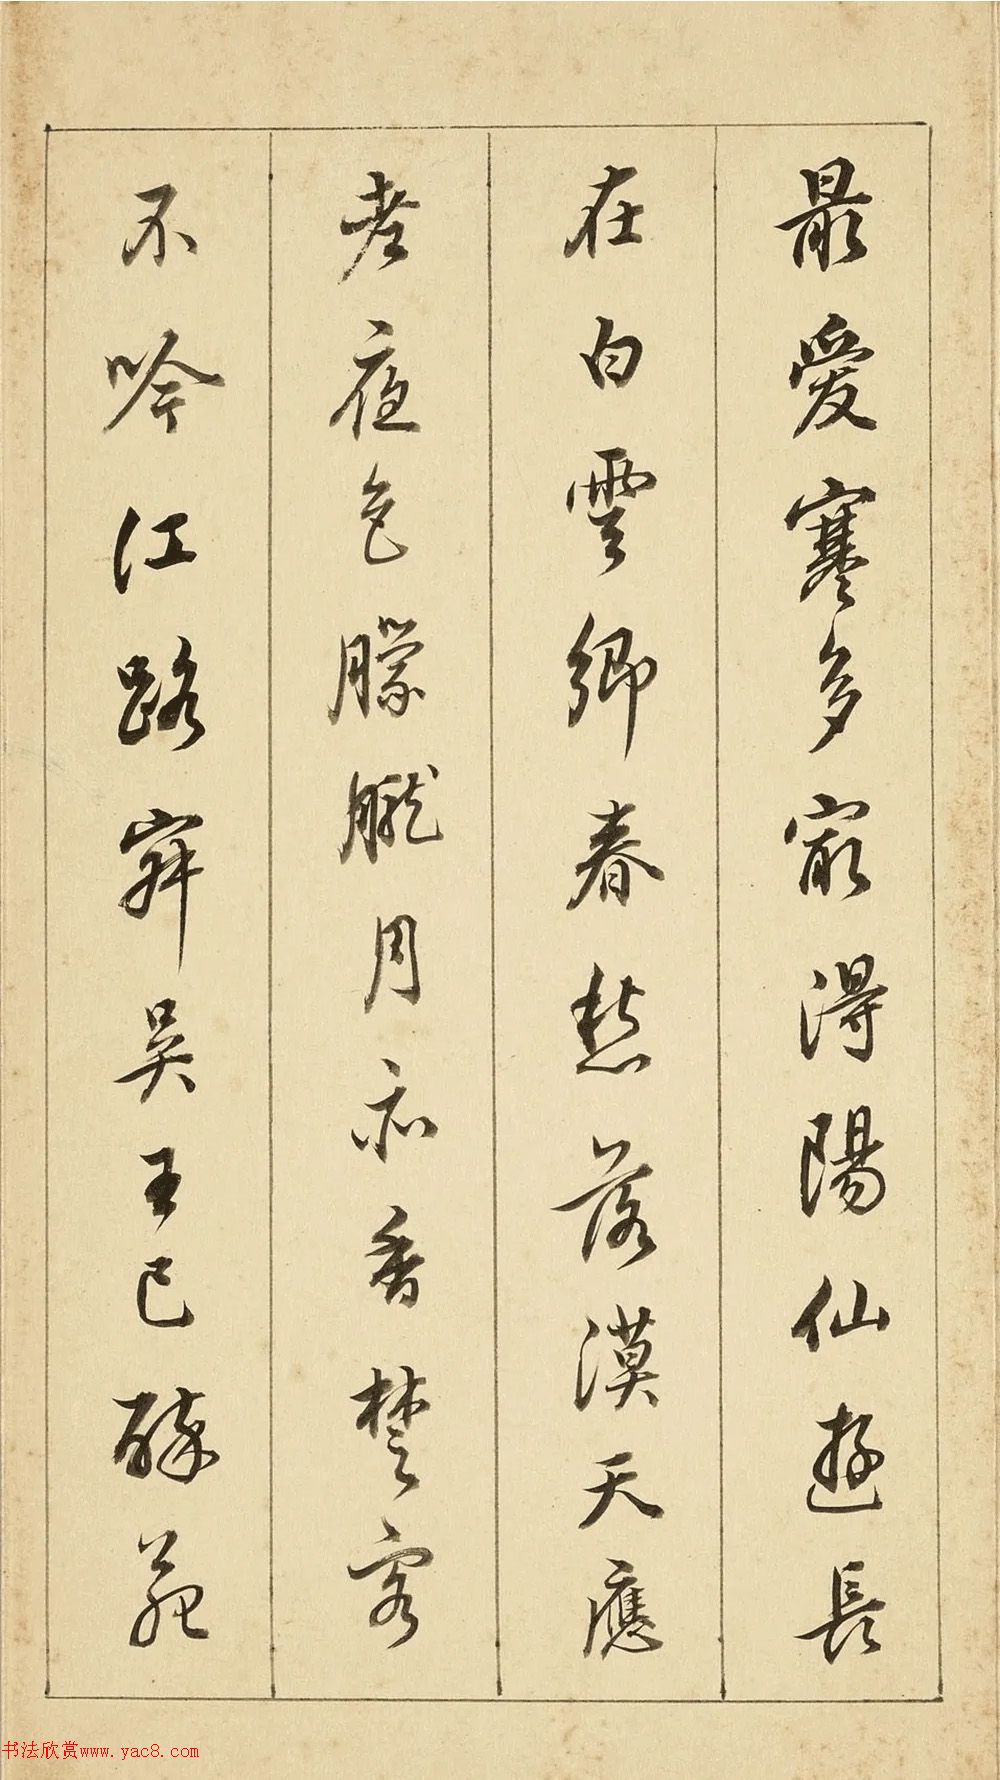 最愛寒多㝡得陽仙遊長
在白雲鄉春愁落漠天應
老夜色朦朧月亦香楚客
不吟江路寂吳王已醉苑
书法欣赏www.yac8.com